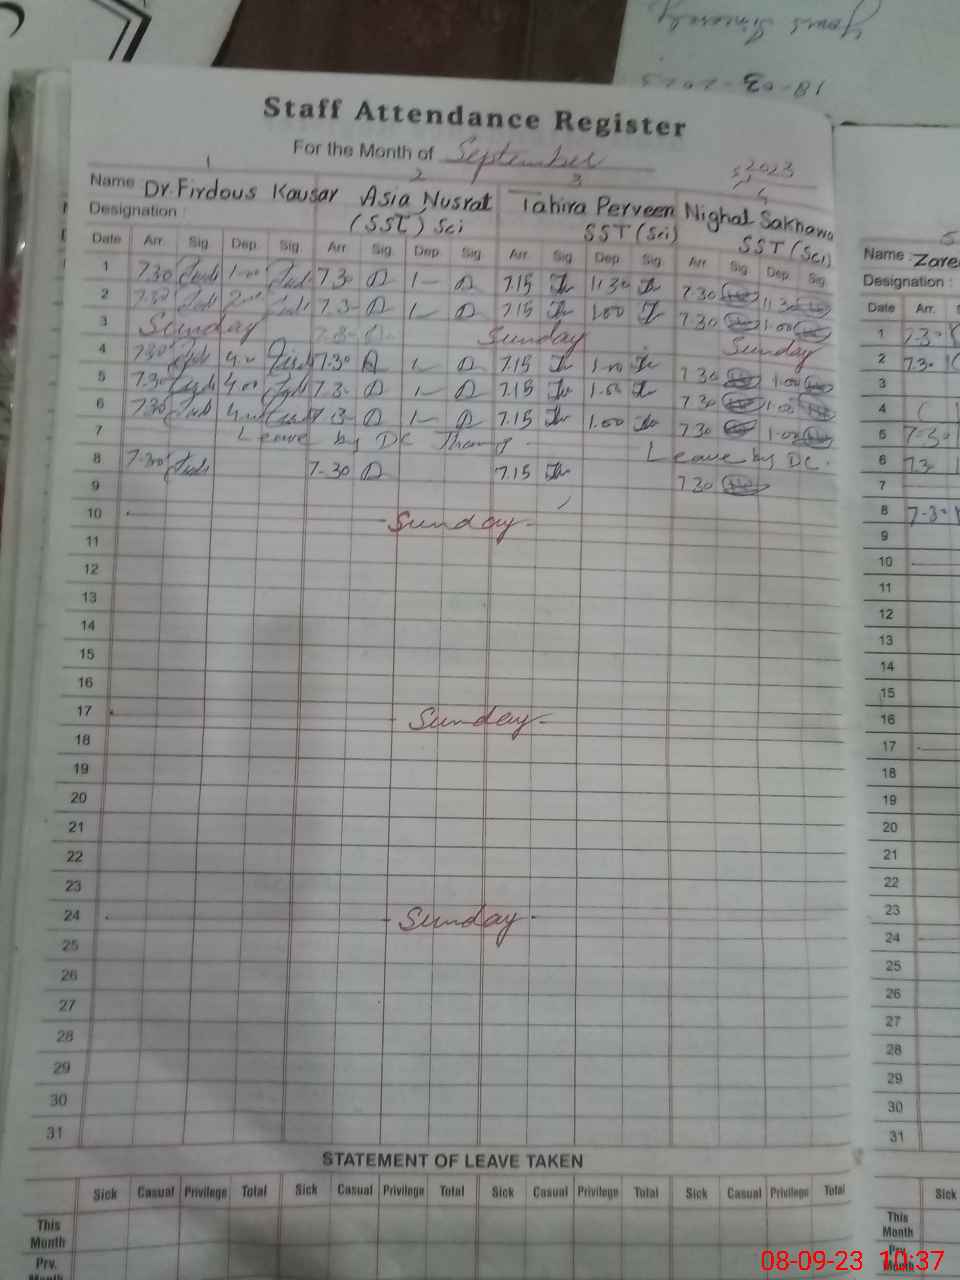 Staff Attendance Register
For the Month of September 2023
1 2 3 4
Name Dr. Firdous Kausar Asia Nusrat Tahira Perveen Nighat Sakhawa
Designation : (SST) Sci SST (Sci) SST (Sci)
Date Arr. Sig. Dep. Sig. Arr. Sig. Dep. Sig. Arr. Sig. Dep. Sig. Arr. Sig. Dep. Sig.
1 7.30 1-00 7.30 1- 7.15 11.30 7.30 11.30
2 7.30 7.3- 1- 7.15 1.00 7.30 1.00
3 Sunday Sunday Sunday
4 7.30 4.00 7.30 1- 7.15 1.00 7.30 1.00
5 7.30 4.00 7.3- 1- 7.15 1.00 7.30 1.00
6 7.30 7.3- 1- 7.15 1.00 7.30 1.00
7 Leave by DC Leave by DC.
8 7-30 7-30 7.15 7.30
9
10 -Sunday-
11
12
13
14
15
16
17 -Sunday-
18
19
20
21
22
23
24 -Sunday-
25
26
27
28
29
30
31
STATEMENT OF LEAVE TAKEN
Sick Casual Privilege Total Sick Casual Privilege Total Sick Casual Privilege Total Sick Casual Privilege Total
This Month
Prv. Month
5
Name : Zare
Designation :
Date Arr.
1 7-3-
2 7.3-
3
4
5 7-3-
6 7.3
7
8 7-3-
9
10
11
12
13
14
15
16
17
18
19
20
21
22
23
24
25
26
27
28
29
30
31
Sick
This Month
Prv. Month
Yours Sincerely
18-03-2023
08-09-23 10:37